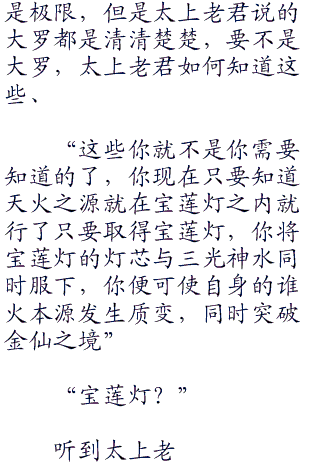 是极限，但是太上老君说的
大罗都是清清楚楚，要不是
大罗，太上老君如何知道这
些、
“这些你就不是你需要
知道的了，你现在只要知道
天火之源就在宝莲灯之内就
行了只要取得宝莲灯，你将
宝莲灯的灯芯与三光神水同
时服下，你便可使自身的谁
火本源发生质变，同时突破
金仙之境”
“宝莲灯？”
听到太上老